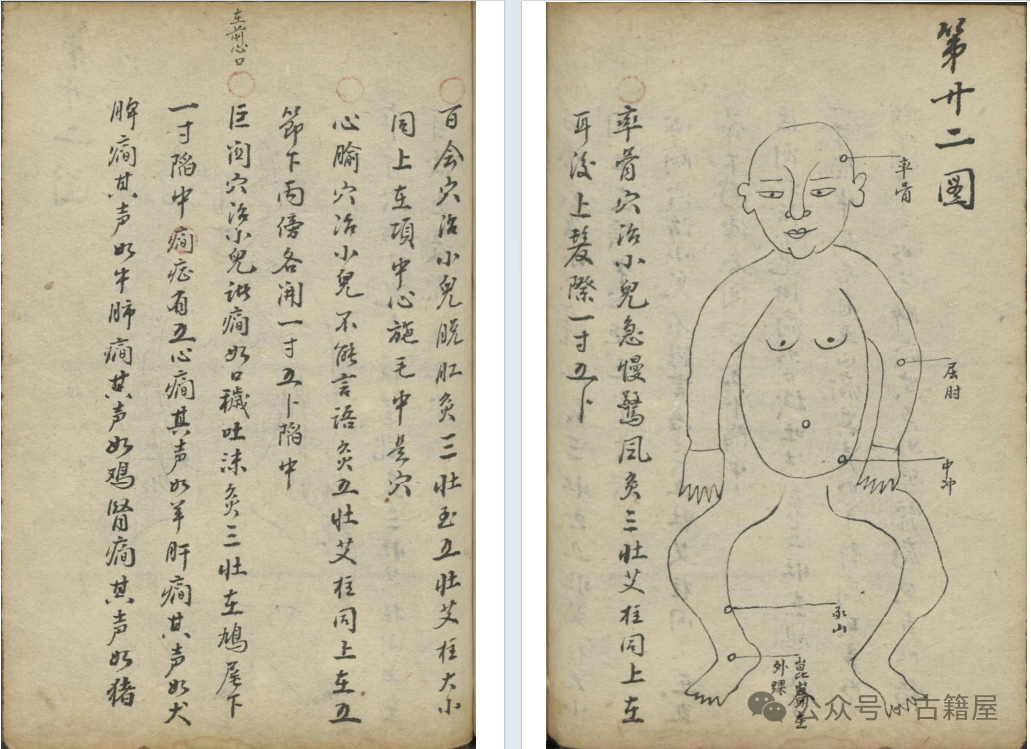 第廿二図
率骨
屈肘
中冲
承山
崑崙在
外踝
率骨穴治小兒急慢驚风灸三壮艾柱同上在
耳後上髮際一寸五卜
百会穴治小兒脱肛灸三壮至五壮艾柱大小
同上在項中心旋毛中是穴
心腧穴治小兒不能言语灸五壮艾柱同上在五
節下两傍各開一寸五卜陷中
在前心口
巨阙穴治小兒诸痫如口穢吐沫灸三壮在鳩尾下
一寸陷中痫症有五心痫其声如羊肝痫其声如犬
脾痫其声如牛肺痫其声如鸡肾痫其声如猪
公众号 古籍屋